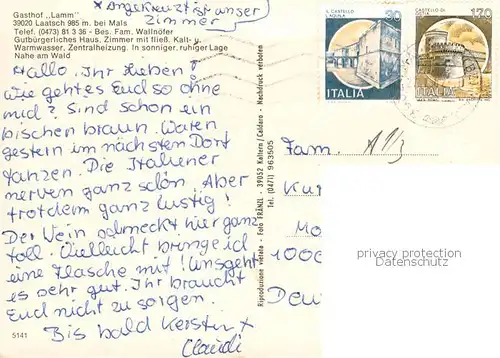 * Angekreuzt ist unser
Zimmer
Gasthof „Lamm"
39020 Laatsch 985 m. bei Mals
Telef. (0473) 81 3 36 - Bes. Fam. Wallnöfer
Gutbürgerliches Haus, Zimmer mit fließ. Kalt- u.
Warmwasser, Zentralheizung. In sonniger, ruhiger Lage
Nahe am Wald
Hallo, Ihr Lieben!
Wie gehts Euch so ohne
mich? Sind schon ein
bischen braun. Waren
gestern im nächsten Dorf
tanzen. Die Italiener
nerven ganz schön. Aber
trotzdem ganz lustig!
Der Wein schmeckt hier ganz
toll. Vielleicht bringe ich
eine Flasche mit! Uns geht
es sehr gut. Ihr braucht
Euch nicht zu sorgen.
Bis bald Kerstin +
Claudi
5141
Riproduzione vietata - Foto FRÄNZL - 39052 Kaltern / Caldaro - Nachdruck verboten
Tel. (0471) 963505
30
ITALIA
CASTELLO DI
170
ITALIA
Fam.
Ku
Mo
1000
Deu
privacy protection
Datenschutz